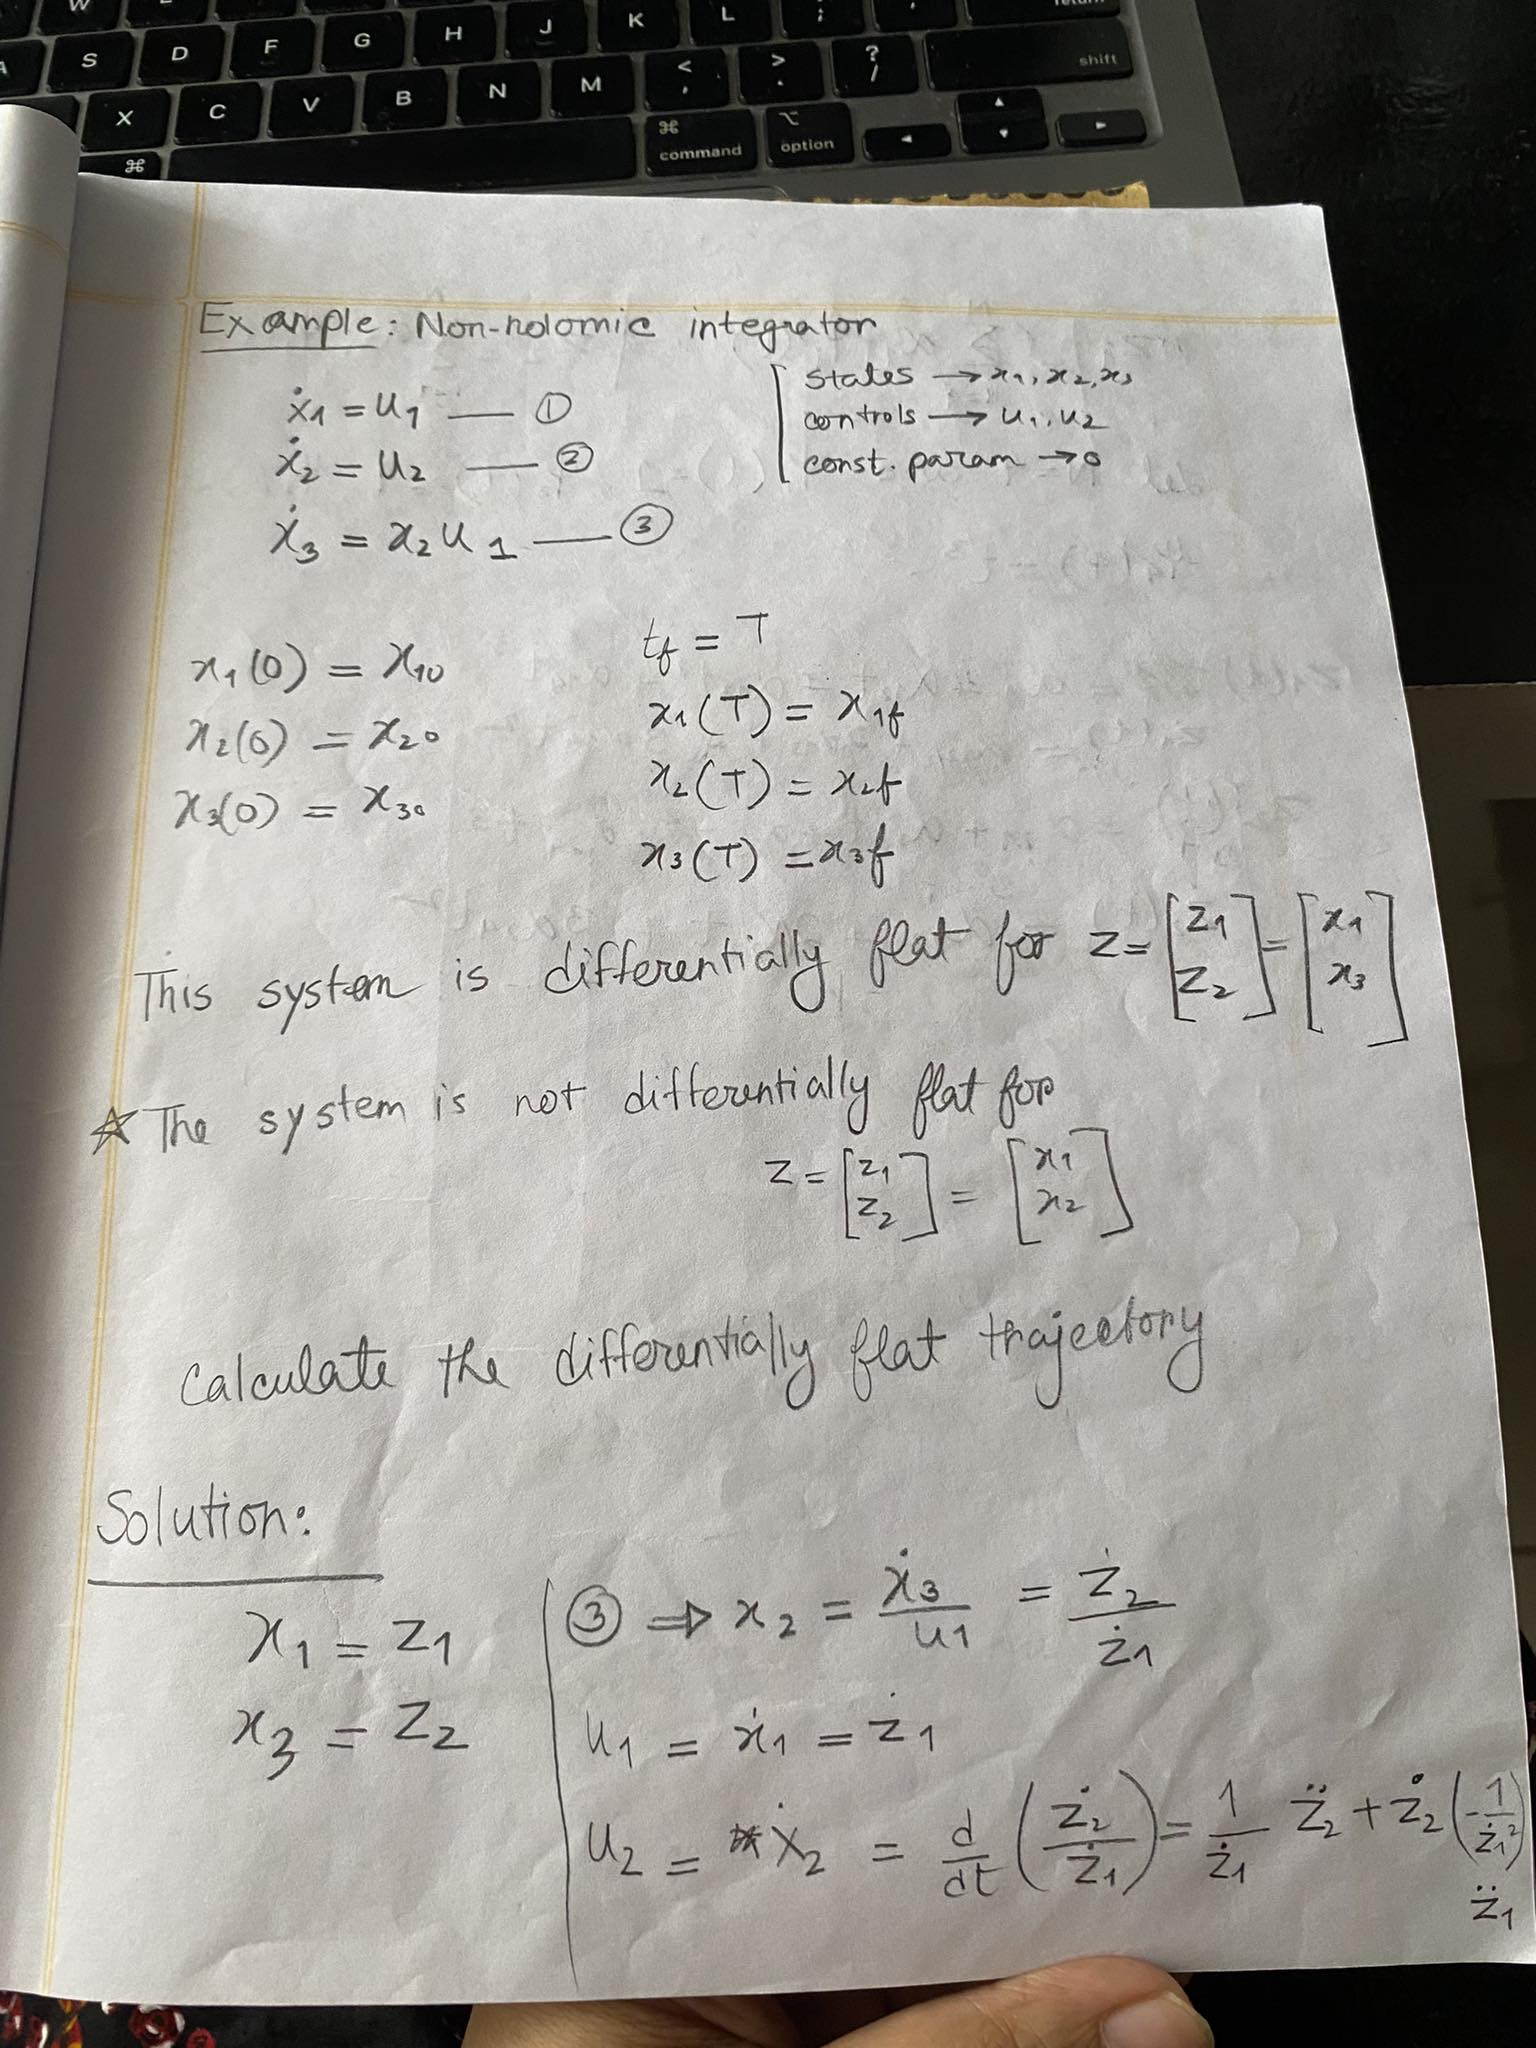 W
return
A S D F G H J K L : ;
X C V B N M < , > . ? / shift
⌘
⌘ command
⌥ option
Example: Non-holomic integrator
ẋ1 = u1 — ①
ẋ2 = u2 — ②
ẋ3 = x2 u1 — ③
states → x1, x2, x3
controls → u1, u2
const. param → 0
x1(0) = x10
x2(0) = x20
x3(0) = x30
tf = T
x1(T) = x1f
x2(T) = x2f
x3(T) = x3f
This system is differentially flat for z = [z1 z2] = [x1 x3]
☆ The system is not differentially flat for
z = [z1 z2] = [x1 x2]
Calculate the differentially flat trajectory
Solution:
x1 = z1
x3 = z2
③ ⇒ x2 = ẋ3/u1 = ż2/ż1
u1 = ẋ1 = ż1
u2 = ẋ2 = d/dt (ż2/ż1) = 1/ż1 z̈2 + ż2 (-1/ż1²) z̈1